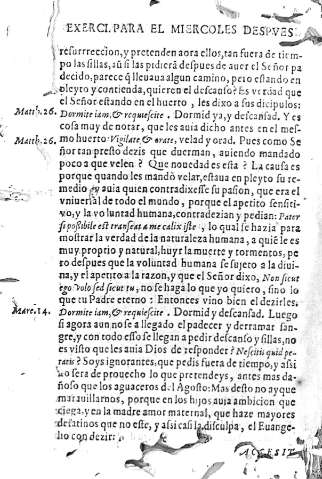 EXERCI. PARA EL MIERCOLES DESPVES
resurrreccion, y pretenden aora ellos, tan fuera de tiem-
po las sillas, aũ si las pidierã despues de auer el Señor pa
decido, parece q̃ lleuaua algun camino, pero estando en
pleyto y contienda, quieren el descanso? Es verdad que
el Señor estando en el huerto, les dixo a sus dicipulos:
Matth. 26. Dormite iam, & requiescite. Dormid ya, y descansad. Y es
cosa muy de notar, que les auia dicho antes en el mes-
Matth. 26. mo huerto: Vigilate & orate, velad y orad. Pues como Se
ñor tan presto dezis que duerman, auiendo mandado
poco a que velen? Que nouedad es esta? La causa es
porque quando les mandò velar, estaua en pleyto su re-
medio, y auia quien contradixesse su pasion, que era el
vniuersal de todo el mundo, porque el apetito sensiti-
vo, y la voluntad humana, contradezian y pedian: Pater
si possibile est transeat a me calix iste: lo qual se hazia para
mostrar la verdad de la naturaleza humana, a quiẽ le es
muy proprio y natural, huyr la muerte y tormentos, pe
ro despues que la voluntad humana se sujeto a la diui-
na, y el apetito a la razon, y que el Señor dixo, Non sicut
ego volo sed sicut tu, no se haga lo que yo quiero, sino lo
que tu Padre eterno: Entonces vino bien el dezirles,
Marc. 14. Dormite iam, & requiescite. Dormid y descansad. Luego
si agora aun no se a llegado el padecer y derramar san-
gre, y con todo esso se llegan a pedir descanso y sillas, no
es visto que les auia Dios de responder? Nescitis quid pe-
tatis? Soys ignorantes, que pedis fuera de tiempo, y assi
no sera de prouecho lo que pretendeys, antes mas da-
ñoso que los aguaceros del Agosto: Mas desto no ay que
marauillarnos, porque en los hijos auia ambicion que
ciega, y en la madre amor maternal, que haze mayores
desatinos que no este, y assi casi la disculpa, el Euange-
lio con dezir:
ACCESIT